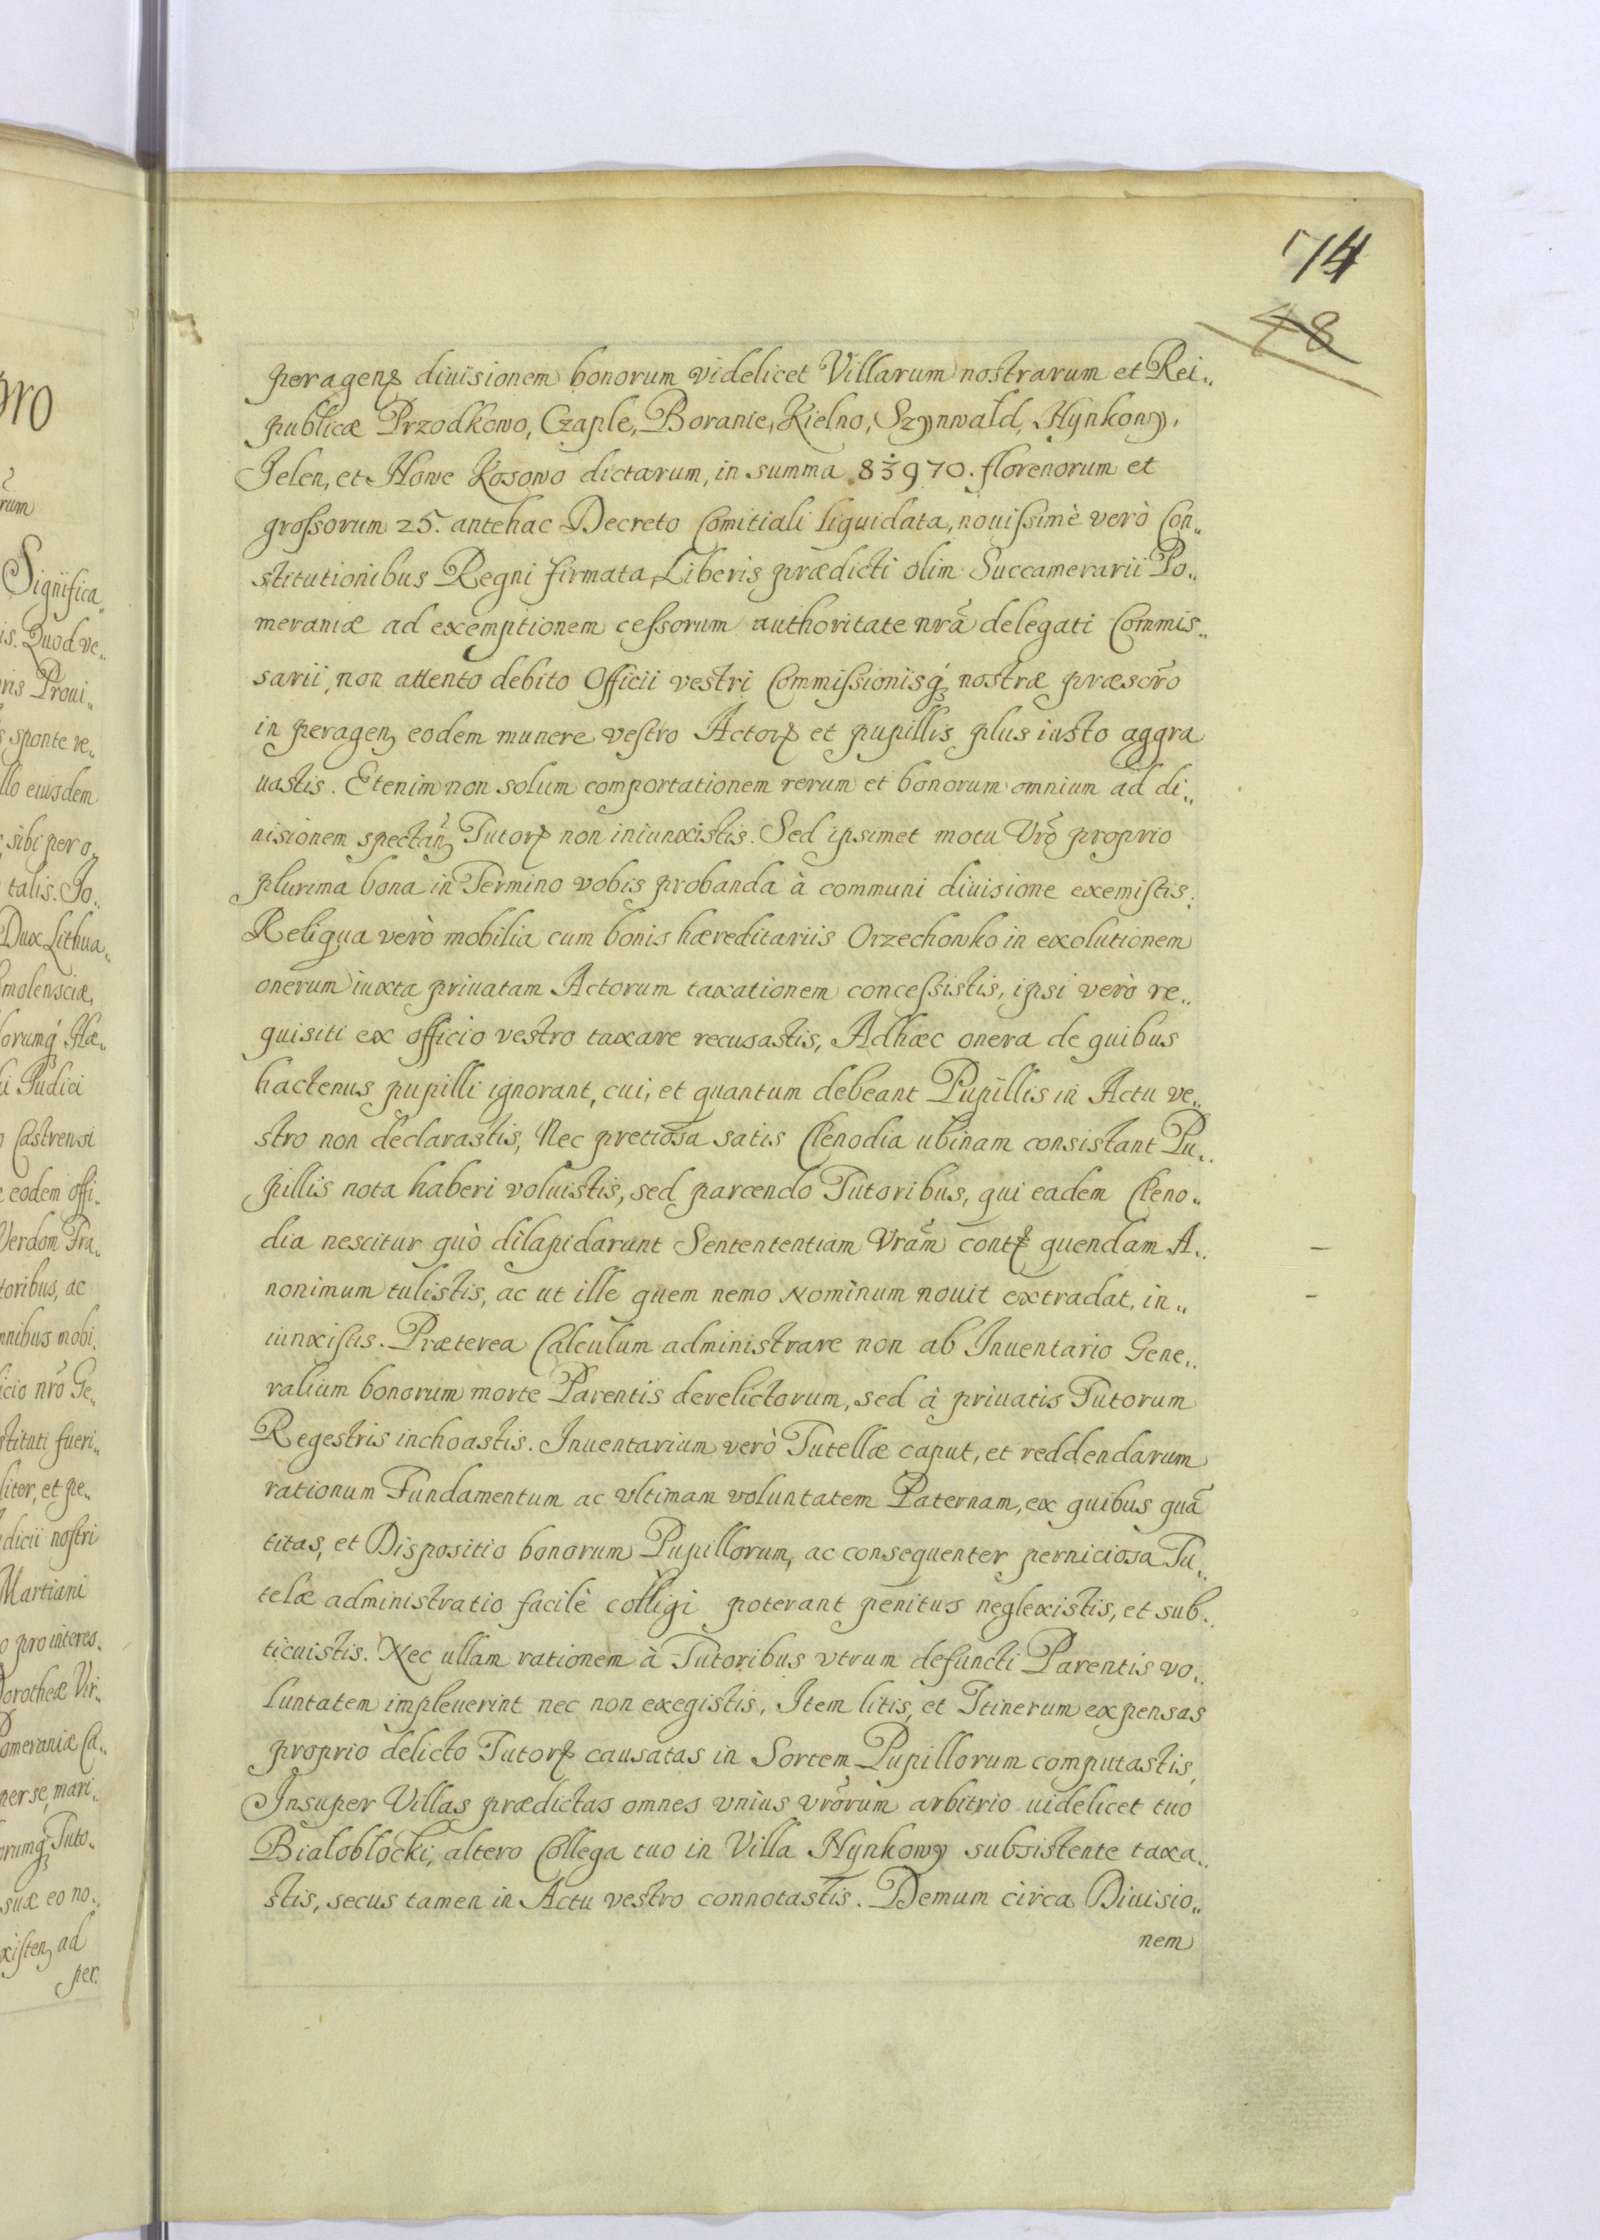 74
48
peragenꝝ diuisionem bonorum videlicet Villarum nostrarum et Rei„
publicæ Przodkowo, Czaple, Boranie, Kielno, Szÿnwald, Hÿnkowÿ,
Jelen, et Howe Kosowo dictarum, in summa 83970. florenorum et
grossorum 25. antehac Decreto Comitiali liquidata, nouissimè verò Con„
stitutionibus Regni firmata, Liberis prædicti olim Succamerarii Po„
meraniæ ad exemptionem cessorum authoritate nrã delegati Commis„
sarii, non attento debito Officii vestri Commissionisq́ nostræ præscrõ
in peragenꝫ eodem munere vestro Actorꝝ et pupillis plus iusto aggra
uastis. Etenim non solum comportationem rerum et bonorum omnium ad di„
uisionem spectañꝫ Tutorꝝ non iniunxistis. Sed ipsimet motu Vrõ proprio
plurima bona in Termino vobis probanda à communi diuisione exemistis.
Reliqua verò mobilia cum bonis hæreditariis Orzechowko in exolutionem
onerum iuxta priuatam Actorum taxationem concessistis, ipsi verò re„
quisiti ex officio vestro taxare recusastis, Adhæc onera de quibus
hactenus pupilli ignorant, cui, et quantum debeant Pupillis in Actu ve„
stro non declarastis, Nec pretiosa satis Clenodia ubinam consistant Pu„
pillis nota haberi voluistis, sed parcendo Tutoribus, qui eadem Cleno„
dia nescitur quò dilapidarunt Sentententiam Vrãm contꝝ quendam A„
nonimum tulistis, ac ut ille quem nemo Nominum nouit extradat, in„
iunxistis. Præterea Calculum administrare non ab Inuentario Gene„
ralium bonorum morte Parentis derelictorum, sed à priuatis Tutorum
Regestris inchoastis. Inuentarium verò Tutellæ caput, et reddendarum
rationum Fundamentum ac vltimam voluntatem Paternam, ex quibus quã
titas, et Dispositio bonorum Pupillorum, ac consequenter perniciosa Tu„
telæ administratio facilè colligi poterant penitus neglexistis, et sub„
ticuistis. Nec ullam rationem à Tutoribus vtrum defuncti Parentis vo„
luntatem impleuerint nec non exegistis, Item litis, et Itinerum expensas
proprio delicto Tutorꝝ causatas in Sortem Pupillorum computastis,
Insuper Villas prædictas omnes vnius vrõrum arbitrio uidelicet tuo
Bialoblocki, altero Collega tuo in Villa Hÿnkowÿ subsistente taxa„
stis, secus tamen in Actu vestro connotastis. Demum circa Diuisio„
nem